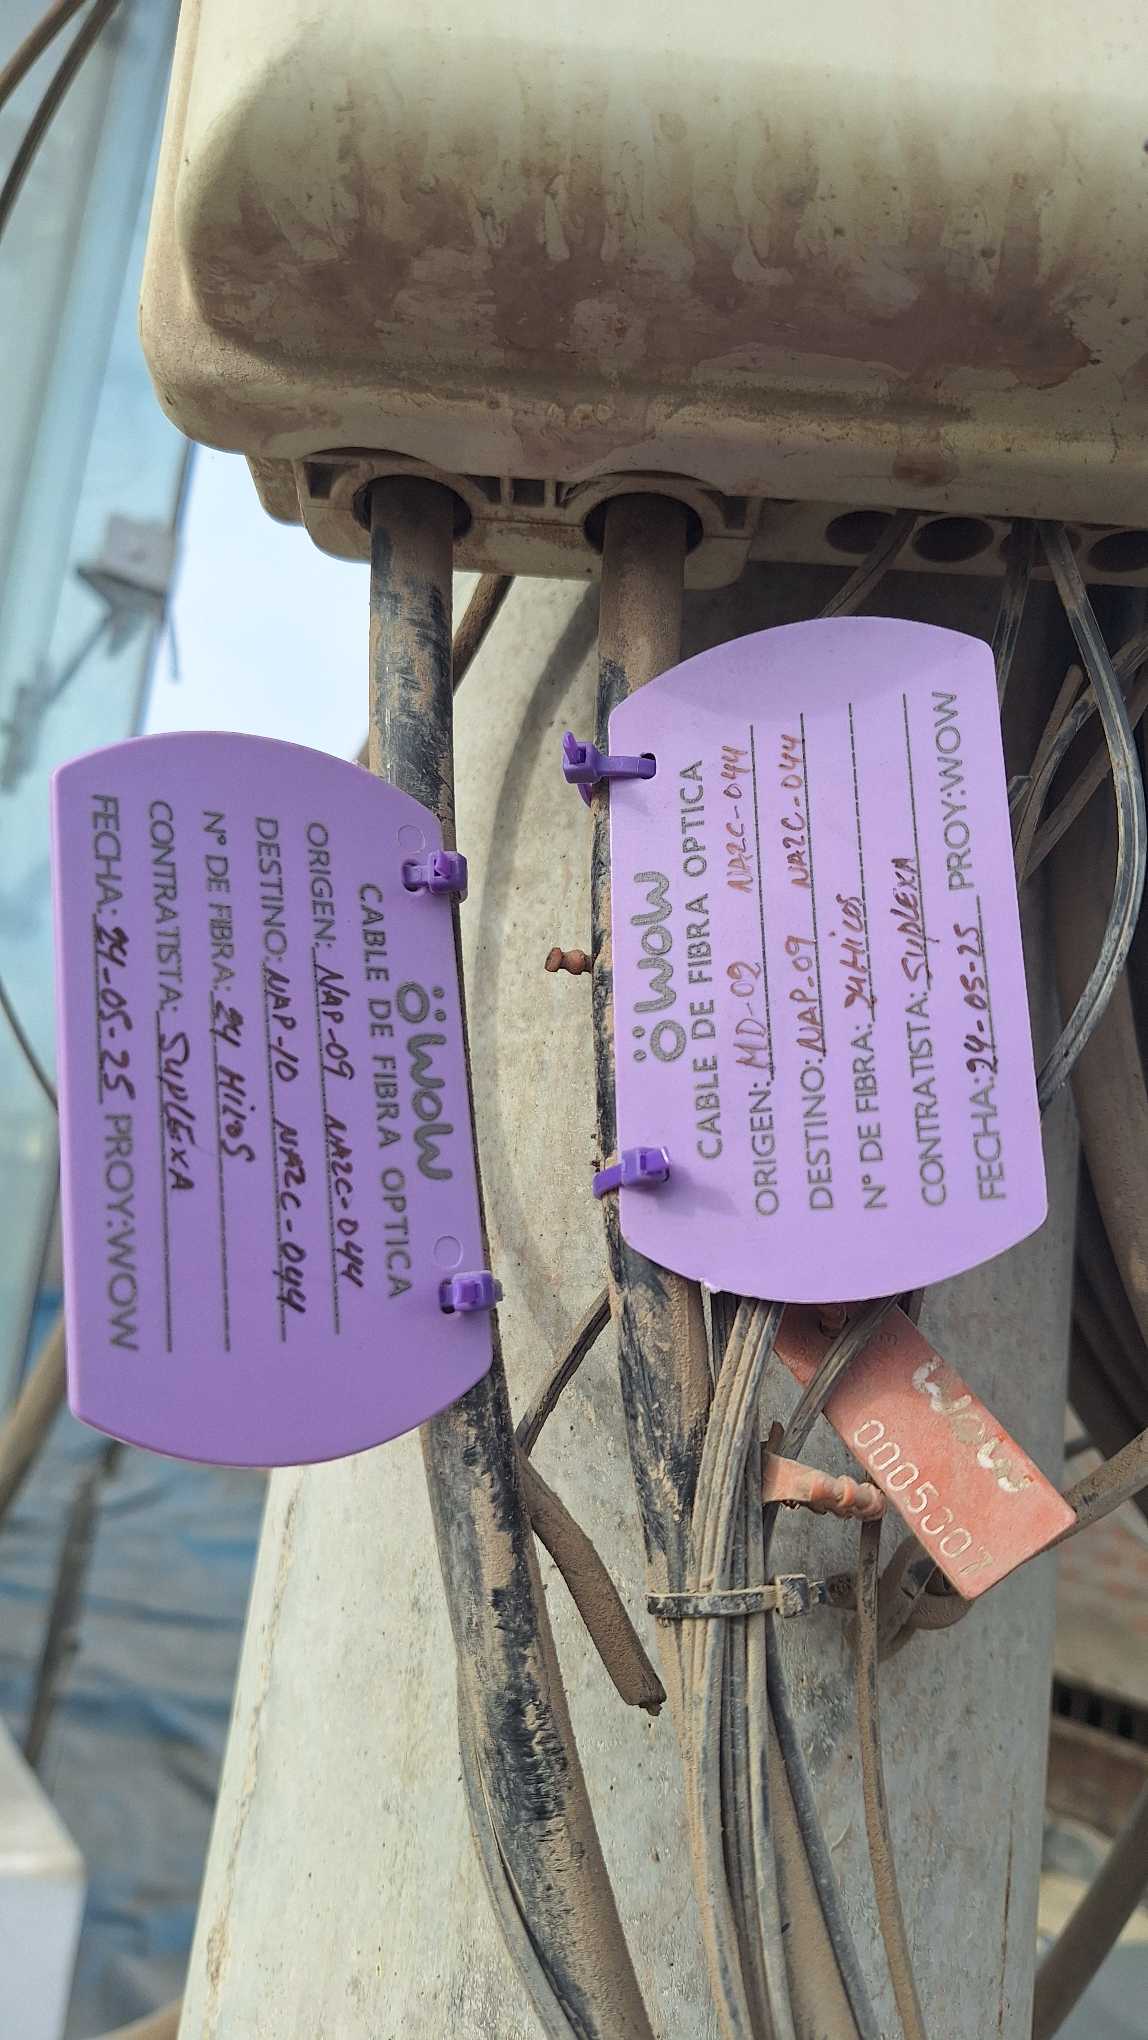 WOW
CABLE DE FIBRA OPTICA
ORIGEN: NAP-09 NA2C-044
DESTINO: NAP-10 NA2C-044
N° DE FIBRA: 24 Hilos
CONTRATISTA: SuplExA
FECHA: 24-05-25 PROY:WOW
WOW
CABLE DE FIBRA OPTICA
ORIGEN: MD-02 NA2C-044
DESTINO: NAP-09 NA2C-044
N° DE FIBRA: 24Hilos
CONTRATISTA: SuplexA
FECHA: 24-05-25 PROY:WOW
WOW
0005007